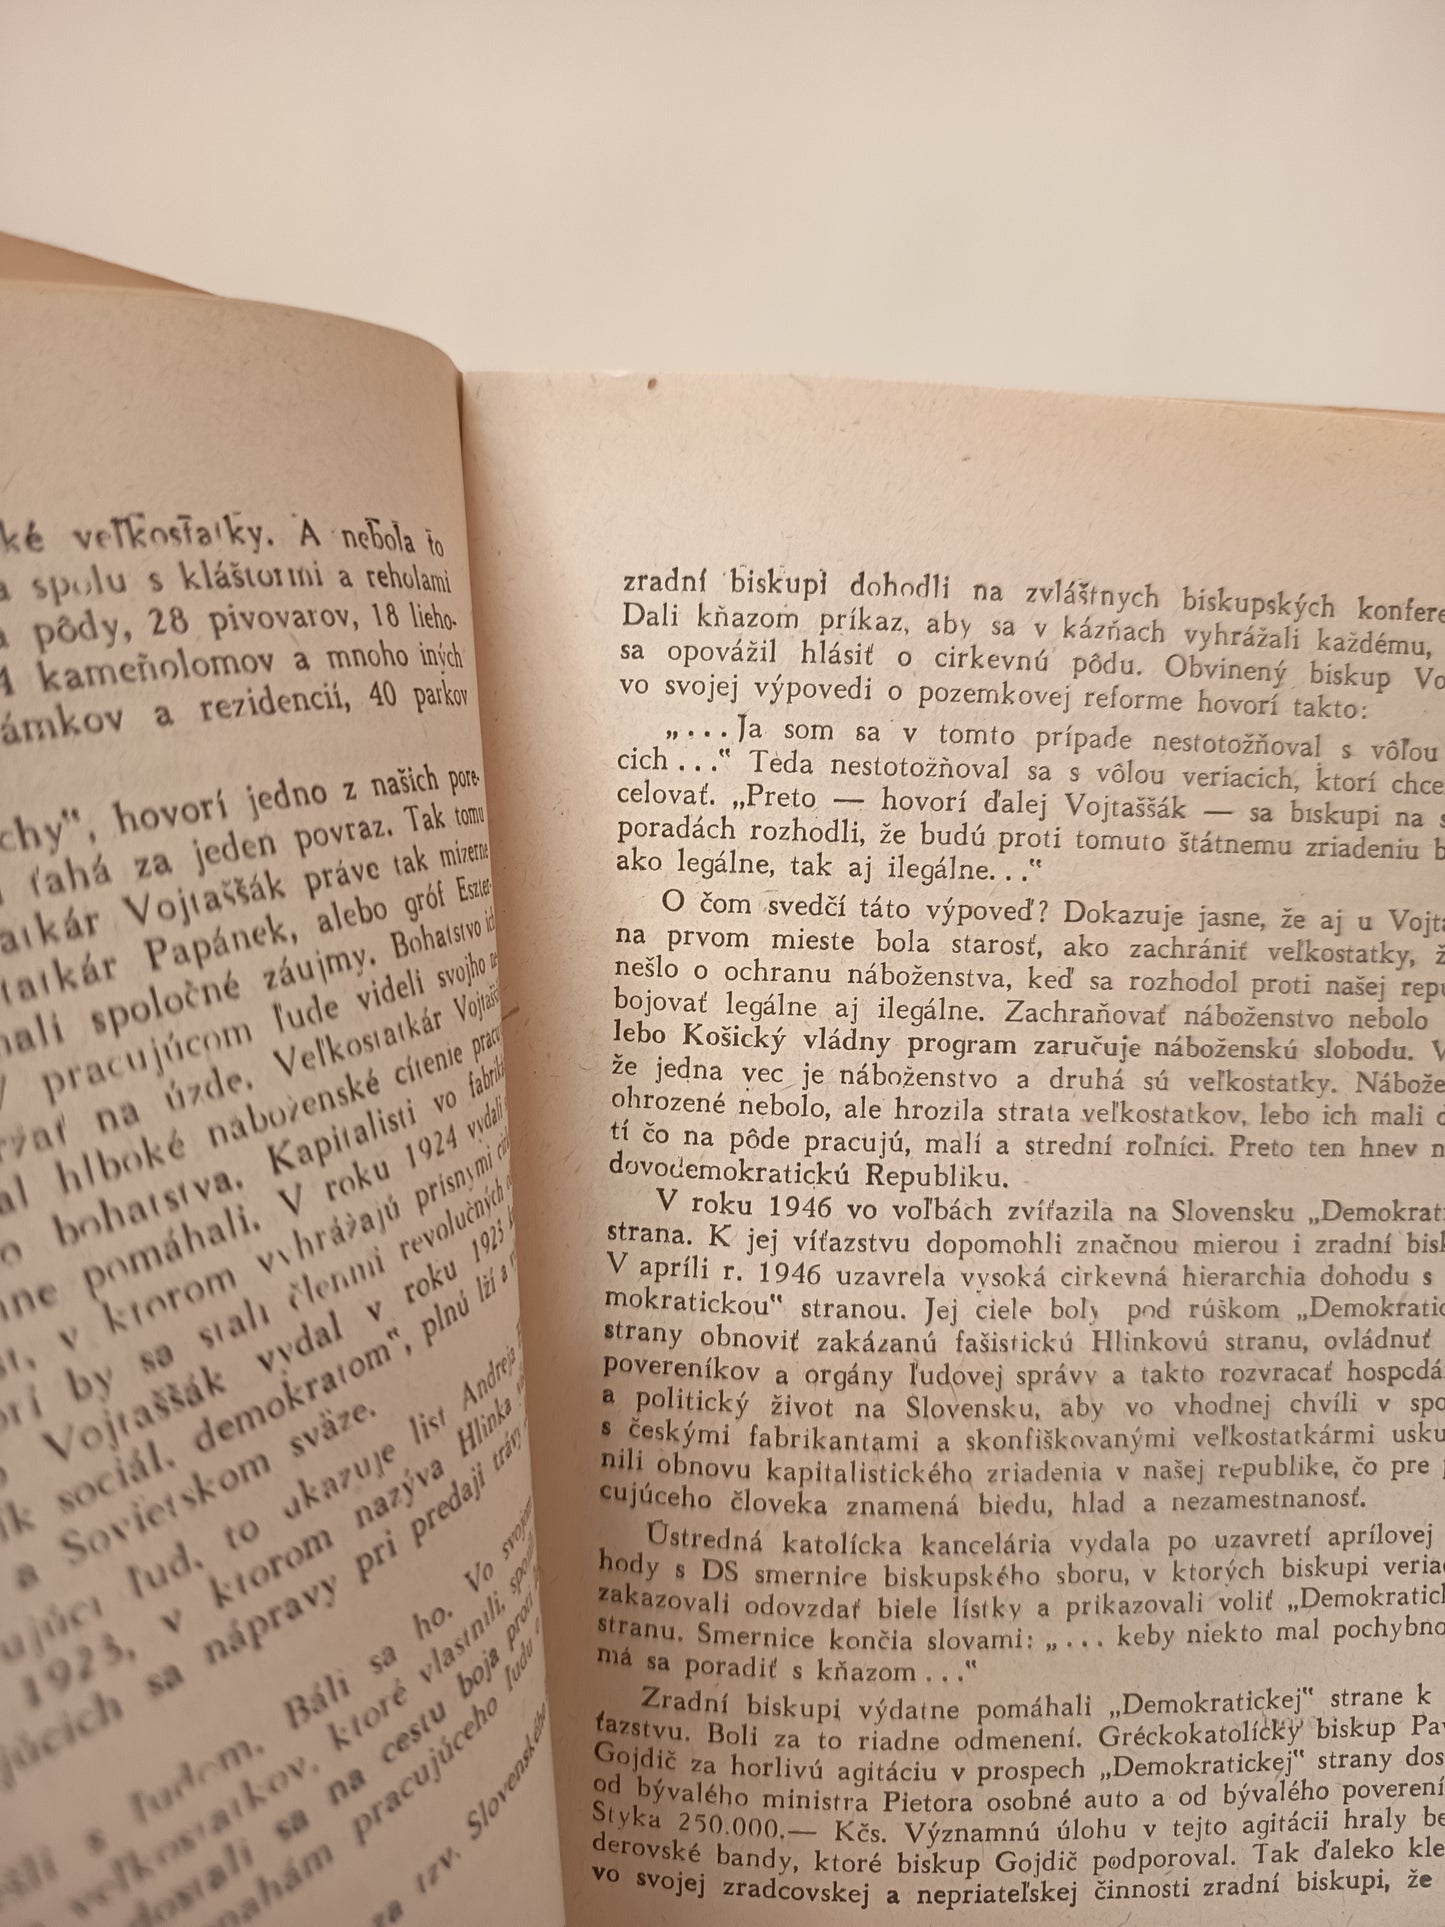 ké veľkostatky. A nebola to
a spolu s kláštormi a reholami
pôdy, 28 pivovarov, 18 lieho-
4 kameňolomov a mnoho iných
ámkov a rezidencií, 40 parkov
chy", hovorí jedno z našich pore-
ťahá za jeden povraz. Tak tomu
atkár Vojtaššák práve tak mizerne
tatkár Papánek, alebo gróf Eszter-
mali spoločné záujmy. Bohatstvo ich
pracujúcom ľude videli svojho
ržať na úzde. Veľkostatkár Vojtašš
al hlboké náboženské cítenie pracu
o bohatstva. Kapitalisti vo fabrik
ne pomáhali. V roku 1924 vydali
st, v ktorom vyhrážajú prísnymi
orí by sa stali členmi revolučných
Vojtaššák vydal v roku 1925
ík sociál. demokratom", plnú lží a
a Sovietskom sväze.
ujúci ľud, to ukazuje list Andreja
1923, v ktorom nazýva Hlinka
júcich sa nápravy pri predaji trávy
s ľudom. Báli sa ho. Vo svojom
veľkostatkov, ktoré vlastnili, spo
dostali sa na cestu boja proti
snahám pracujúceho ľudu
za tzv. Slovenského
zradní biskupi dohodli na zvláštnych biskupských konfere
Dali kňazom príkaz, aby sa v kázňach vyhrážali každému,
sa opovážil hlásiť o cirkevnú pôdu. Obvinený biskup Vo
vo svojej výpovedi o pozemkovej reforme hovorí takto:
„...Ja som sa v tomto prípade nestotožňoval s vôľou
cich..." Teda nestotožňoval sa s vôlou veriacich, ktorí chce
celovať. „Preto — hovorí ďalej Vojtaššák — sa biskupi na s
poradách rozhodli, že budú proti tomuto štátnemu zriadeniu b
ako legálne, tak aj ilegálne..."
O čom svedčí táto výpoveď? Dokazuje jasne, že aj u Vojta
na prvom mieste bola starosť, ako zachrániť veľkostatky, ž
nešlo o ochranu náboženstva, keď sa rozhodol proti našej repu
bojovať legálne aj ilegálne. Zachraňovať náboženstvo nebolo
lebo Košický vládny program zaručuje náboženskú slobodu. V
že jedna vec je náboženstvo a druhá sú veľkostatky. Nábože
ohrozené nebolo, ale hrozila strata veľkostatkov, lebo ich mali d
tí čo na pôde pracujú, malí a strední roľníci. Preto ten hnev n
dovodemokratickú Republiku.
V roku 1946 vo voľbách zvíťazila na Slovensku „Demokrati
strana. K jej víťazstvu dopomohli značnou mierou i zradní bisk
V apríli r. 1946 uzavrela vysoká cirkevná hierarchia dohodu s
mokratickou" stranou. Jej ciele boly pod rúškom „Demokratic
strany obnoviť zakázanú fašistickú Hlinkovú stranu, ovládnuť
povereníkov a orgány ľudovej správy a takto rozvracať hospodá
a politický život na Slovensku, aby vo vhodnej chvíli v spo
s českými fabrikantami a skonfiškovanými veľkostatkármi usku
nili obnovu kapitalistického zriadenia v našej republike, čo pre p
cujúceho človeka znamená biedu, hlad a nezamestnanosť.
Ústredná katolícka kancelária vydala po uzavretí aprílovej
hody s DS smernice biskupského sboru, v ktorých biskupi veria
zakazovali odovzdať biele lístky a prikazovali voliť „Demokratick
stranu. Smernice končia slovami: „... keby niekto mal pochybno
má sa poradiť s kňazom..."
Zradní biskupi výdatne pomáhali „Demokratickej" strane k
ťazstvu. Boli za to riadne odmenení. Gréckokatolícky biskup Pav
Gojdič za horlivú agitáciu v prospech „Demokratickej" strany dos
od bývalého ministra Pietora osobné auto a od bývalého poverení
Styka 250.000.— Kčs. Významnú úlohu v tejto agitácii hraly be
derovské bandy, ktoré biskup Gojdič podporoval. Tak ďaleko kle
vo svojej zradcovskej a nepriateľskej činnosti zradní biskupi, že